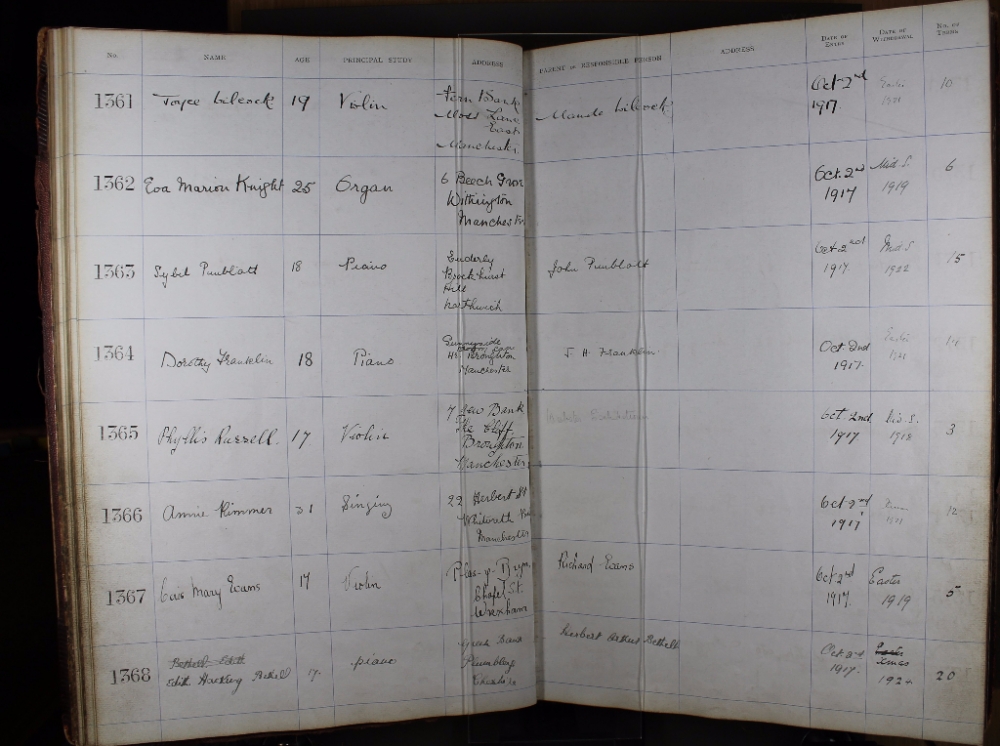 No. NAME AGE PRINCIPAL STUDY ADDRESS PARENT OR RESPONSIBLE PERSON ADDRESS DATE OF ENTRY DATE OF WITHDRAWAL NO. OF TERMS
1361 Joyce Lilcock 19 Violin Fern Bank Maude Lilcock Oct 2nd 10
Moss Lane 1917.
East
Manchester
1362 Eva Marion Knight 25 Organ 6 Beech Grove Oct. 2nd Mid S. 6
Withington 1917 1919
Manchester
1363 Sybil 18 Piano John Oct 2nd Mid S. 15
Brockhurst 1917 1922
Hill
Northwich
1364 Dorothy Franklin 18 Piano Sunnyside J. H. Franklin Oct 2nd 14
Hr. Broughton 1917.
Manchester
1365 Phyllis Russell. 17 Violin 7 New Bank Oct 2nd Mid S. 3
The Cliff 1917 1918
Broughton
Manchester
1366 Annie Rimmer 31 Singing 22 Herbert St Oct 2nd 12
Manchester 1917
1367 Mary Evans 17 Violin Plas-y-Bryn Richard Evans Oct 2nd Easter 5
Chapel St. 1917. 1919
Wrexham
1368 Edith Hackney Bethell 17. piano Herbert Bethell Oct 2nd Xmas 20
Plumbley 1917.
Cheshire